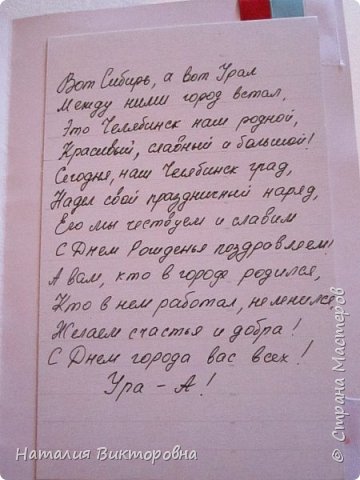 Вот Сибирь, а вот Урал
Между ними город встал,
Это Челябинск наш родной,
Красивый, славный и большой!
Сегодня, наш Челябинск град,
Надел свой праздничный наряд,
Его мы чествуем и славим
С Днем Рожденья поздравляем!
А вам, кто в городе родился,
Кто в нем работал, не ленился,
Желаем счастья и добра!
С Днем города вас всех!
Ура - А!
Наталия Викторовна
© Страна Мастеров